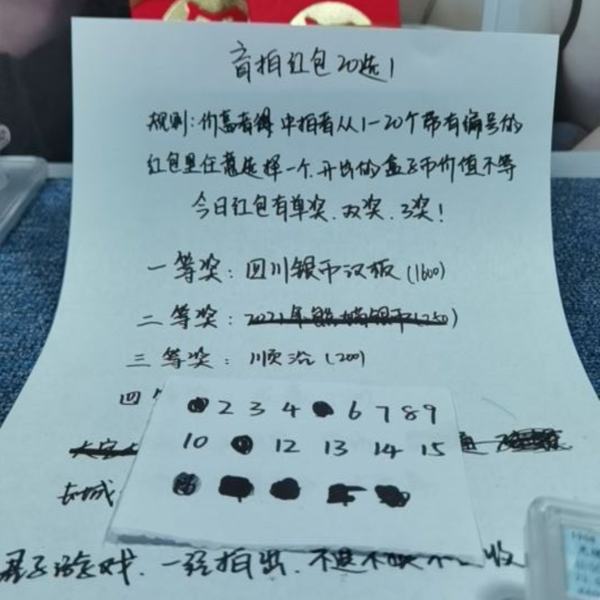 盲拍红包20选1
规则:价高者得 中拍者从1-20个带有编号的
红包里任意选择一个.开出的盒子币价值不等
今日红包有单奖.双奖.3奖!
一等奖:四川银币汉版(1600)
二等奖:2021年熊猫银币(250)
三等奖:顺治(200)
四
2 3 4 6 7 8 9
10 12 13 14 15
长城
游戏.一经拍出.不退不换不 收